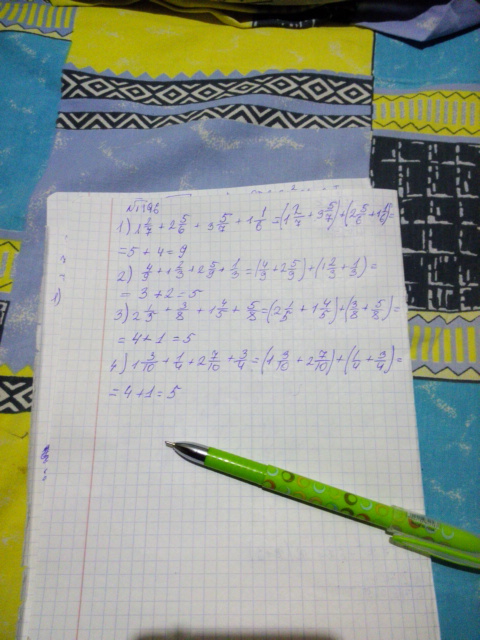 №1196
1) 1 2/7 + 2 5/6 + 3 5/7 + 1 1/6 = (1 2/7 + 3 5/7) + (2 5/6 + 1 1/6) =
= 5 + 4 = 9
2) 4/9 + 1 2/3 + 2 5/9 + 1/3 = (4/9 + 2 5/9) + (1 2/3 + 1/3) =
= 3 + 2 = 5
1)
3) 2 1/5 + 3/8 + 1 4/5 + 5/8 = (2 1/5 + 1 4/5) + (3/8 + 5/8) =
= 4 + 1 = 5
4) 1 3/10 + 1/4 + 2 7/10 + 3/4 = (1 3/10 + 2 7/10) + (1/4 + 3/4) =
= 4 + 1 = 5